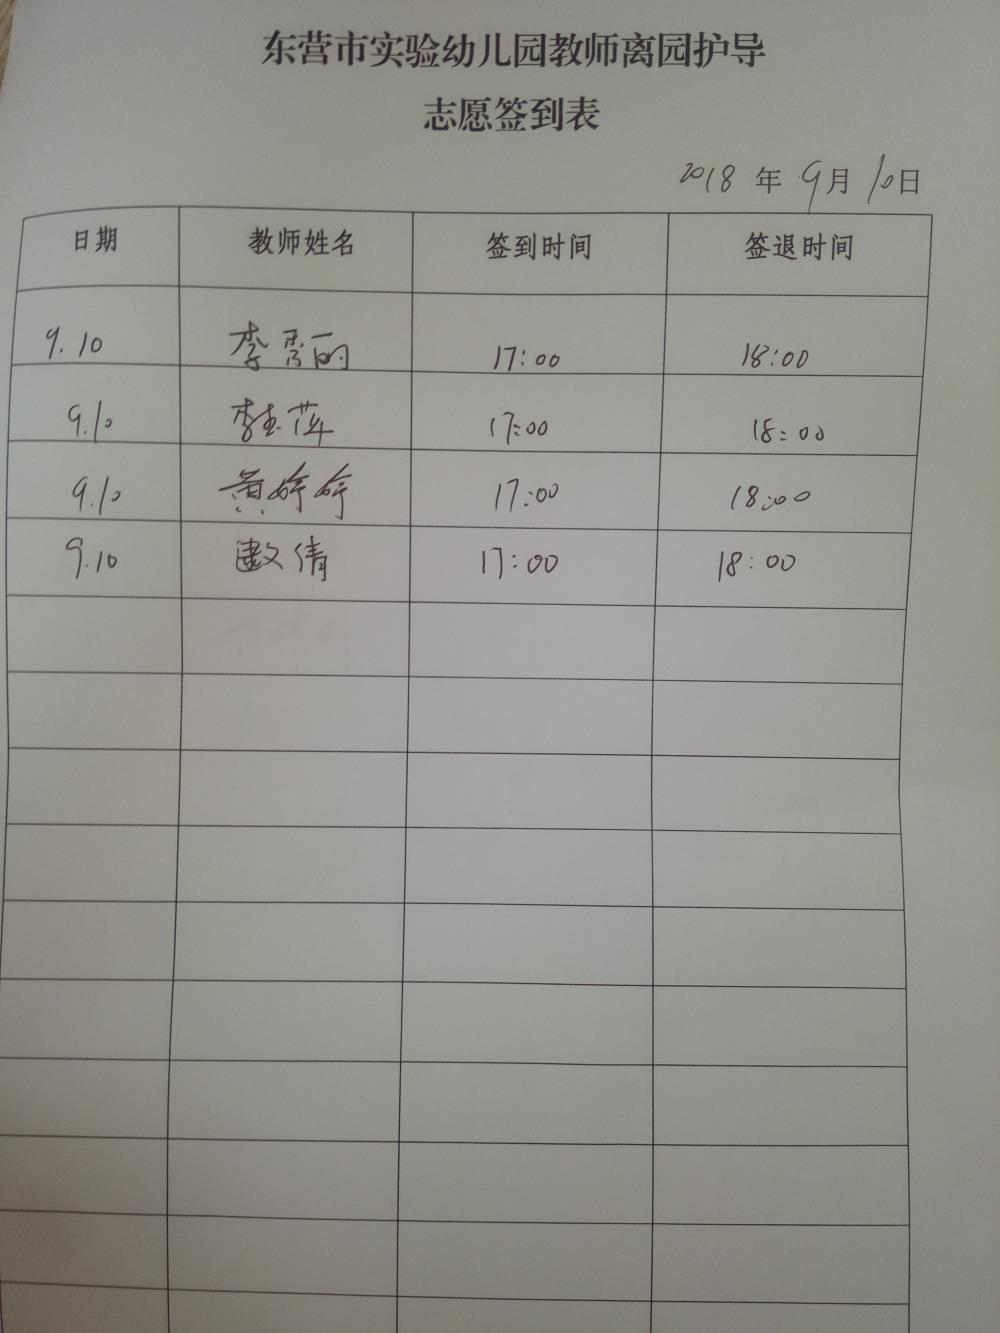 东营市实验幼儿园教师离园护导
志愿签到表
2018 年 9月 10日
日期 教师姓名 签到时间 签退时间
9.10 李秀丽 17:00 18:00
9.10 李玉萍 17:00 18:00
9.10 黄婷婷 17:00 18:00
9.10 倩 17:00 18:00